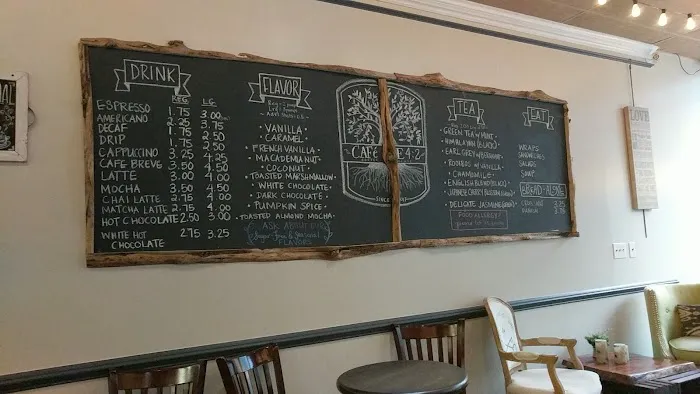 DRINK
REG LG
ESPRESSO 1.75 3.00
AMERICANO 2.25 3.75
DECAF 1.75 2.50
DRIP 1.75 2.50
CAPPUCCINO 3.25 4.25
CAFE BREVE 3.50 4.50
LATTE 3.00 4.00
MOCHA 3.50 4.50
CHAI LATTE 2.75 4.00
MATCHA LATTE 2.75 4.00
HOT CHOCOLATE 2.50 3.00
WHITE HOT 2.75 3.25
CHOCOLATE
FLAVOR
VANILLA
CARAMEL
FRENCH VANILLA
MACADEMIA NUT
COCONUT
TOASTED MARSHMALLOW
WHITE CHOCOLATE
DARK CHOCOLATE
PUMPKIN SPICE
TOASTED ALMOND MOCHA
ASK ABOUT OUR
Sugar Free & Seasonal
FLAVORS
CAFÉ E 4:2
TEA
GREEN TEA & MINT
HIMALAYAN (BLACK)
CHAMOMILE
ENGLISH BLEND (BLACK)
DELICATE JASMINE
FOOD ALLERGY!
EAT
WRAPS
SANDWICHES
SALADS
SOUP
BREAD-ALONE